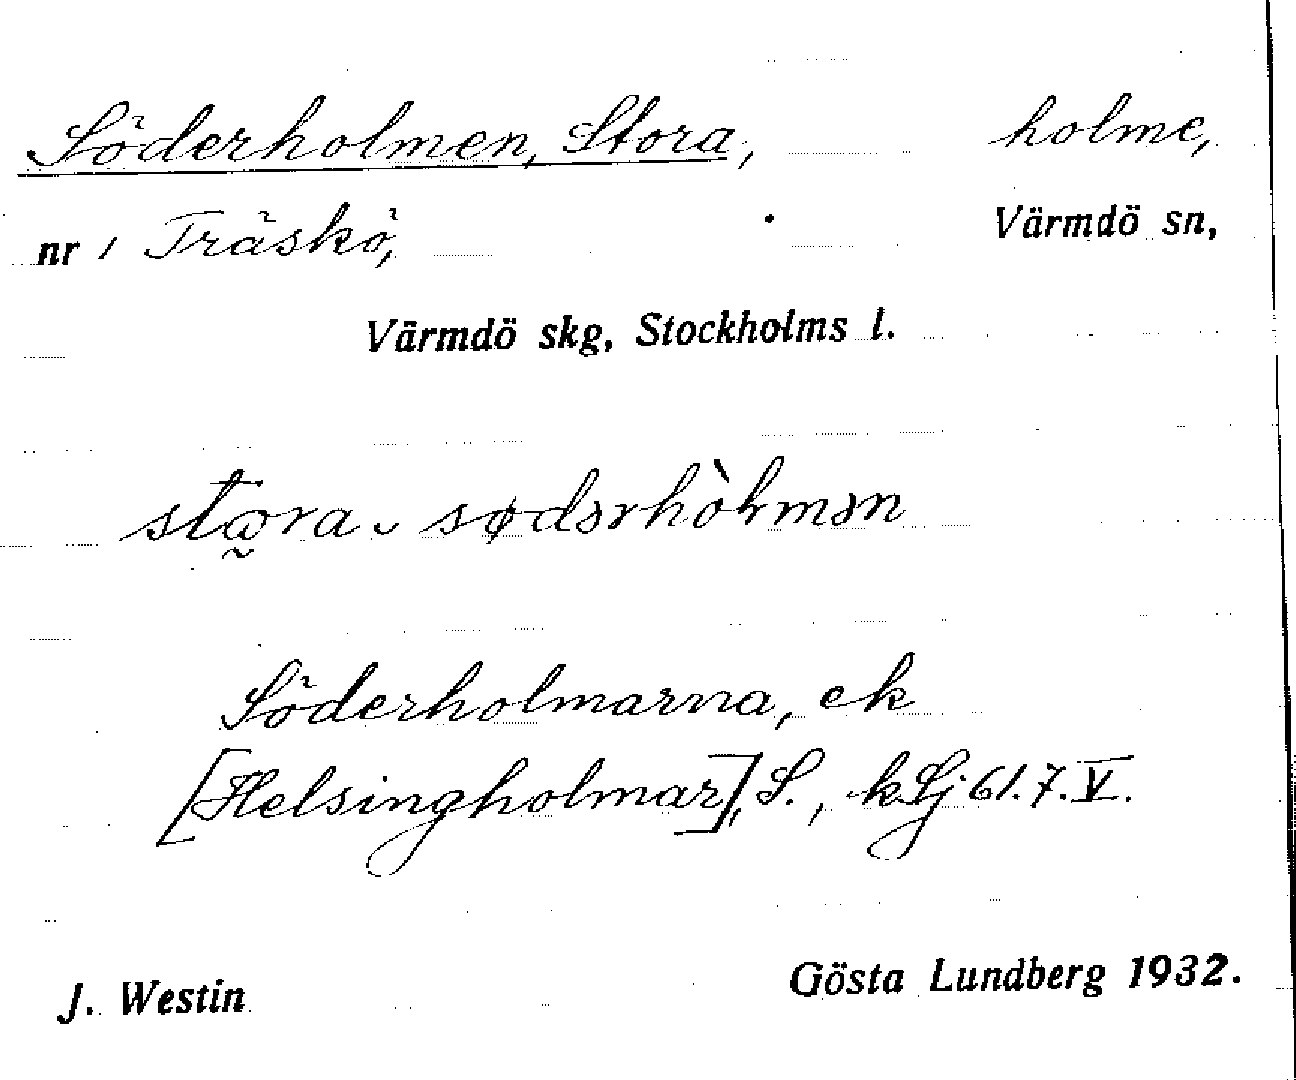 Söderholmen, Stora, holme,
nr 1 Träskö, Värmdö sn,
Värmdö skg, Stockholms l.
Söderholmarna, ek
[Helsingholmar], S., k Sj 61.7.V.
J. Westin Gösta Lundberg 1932.